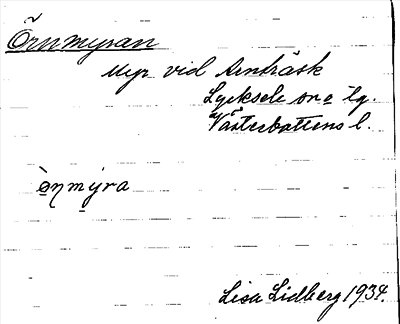 Örnmyran
Myr vid Arnträsk
Lycksele sn o lg.
Västerbottens l.
ə̀ṇmýra
Lisa Lidberg 1934.